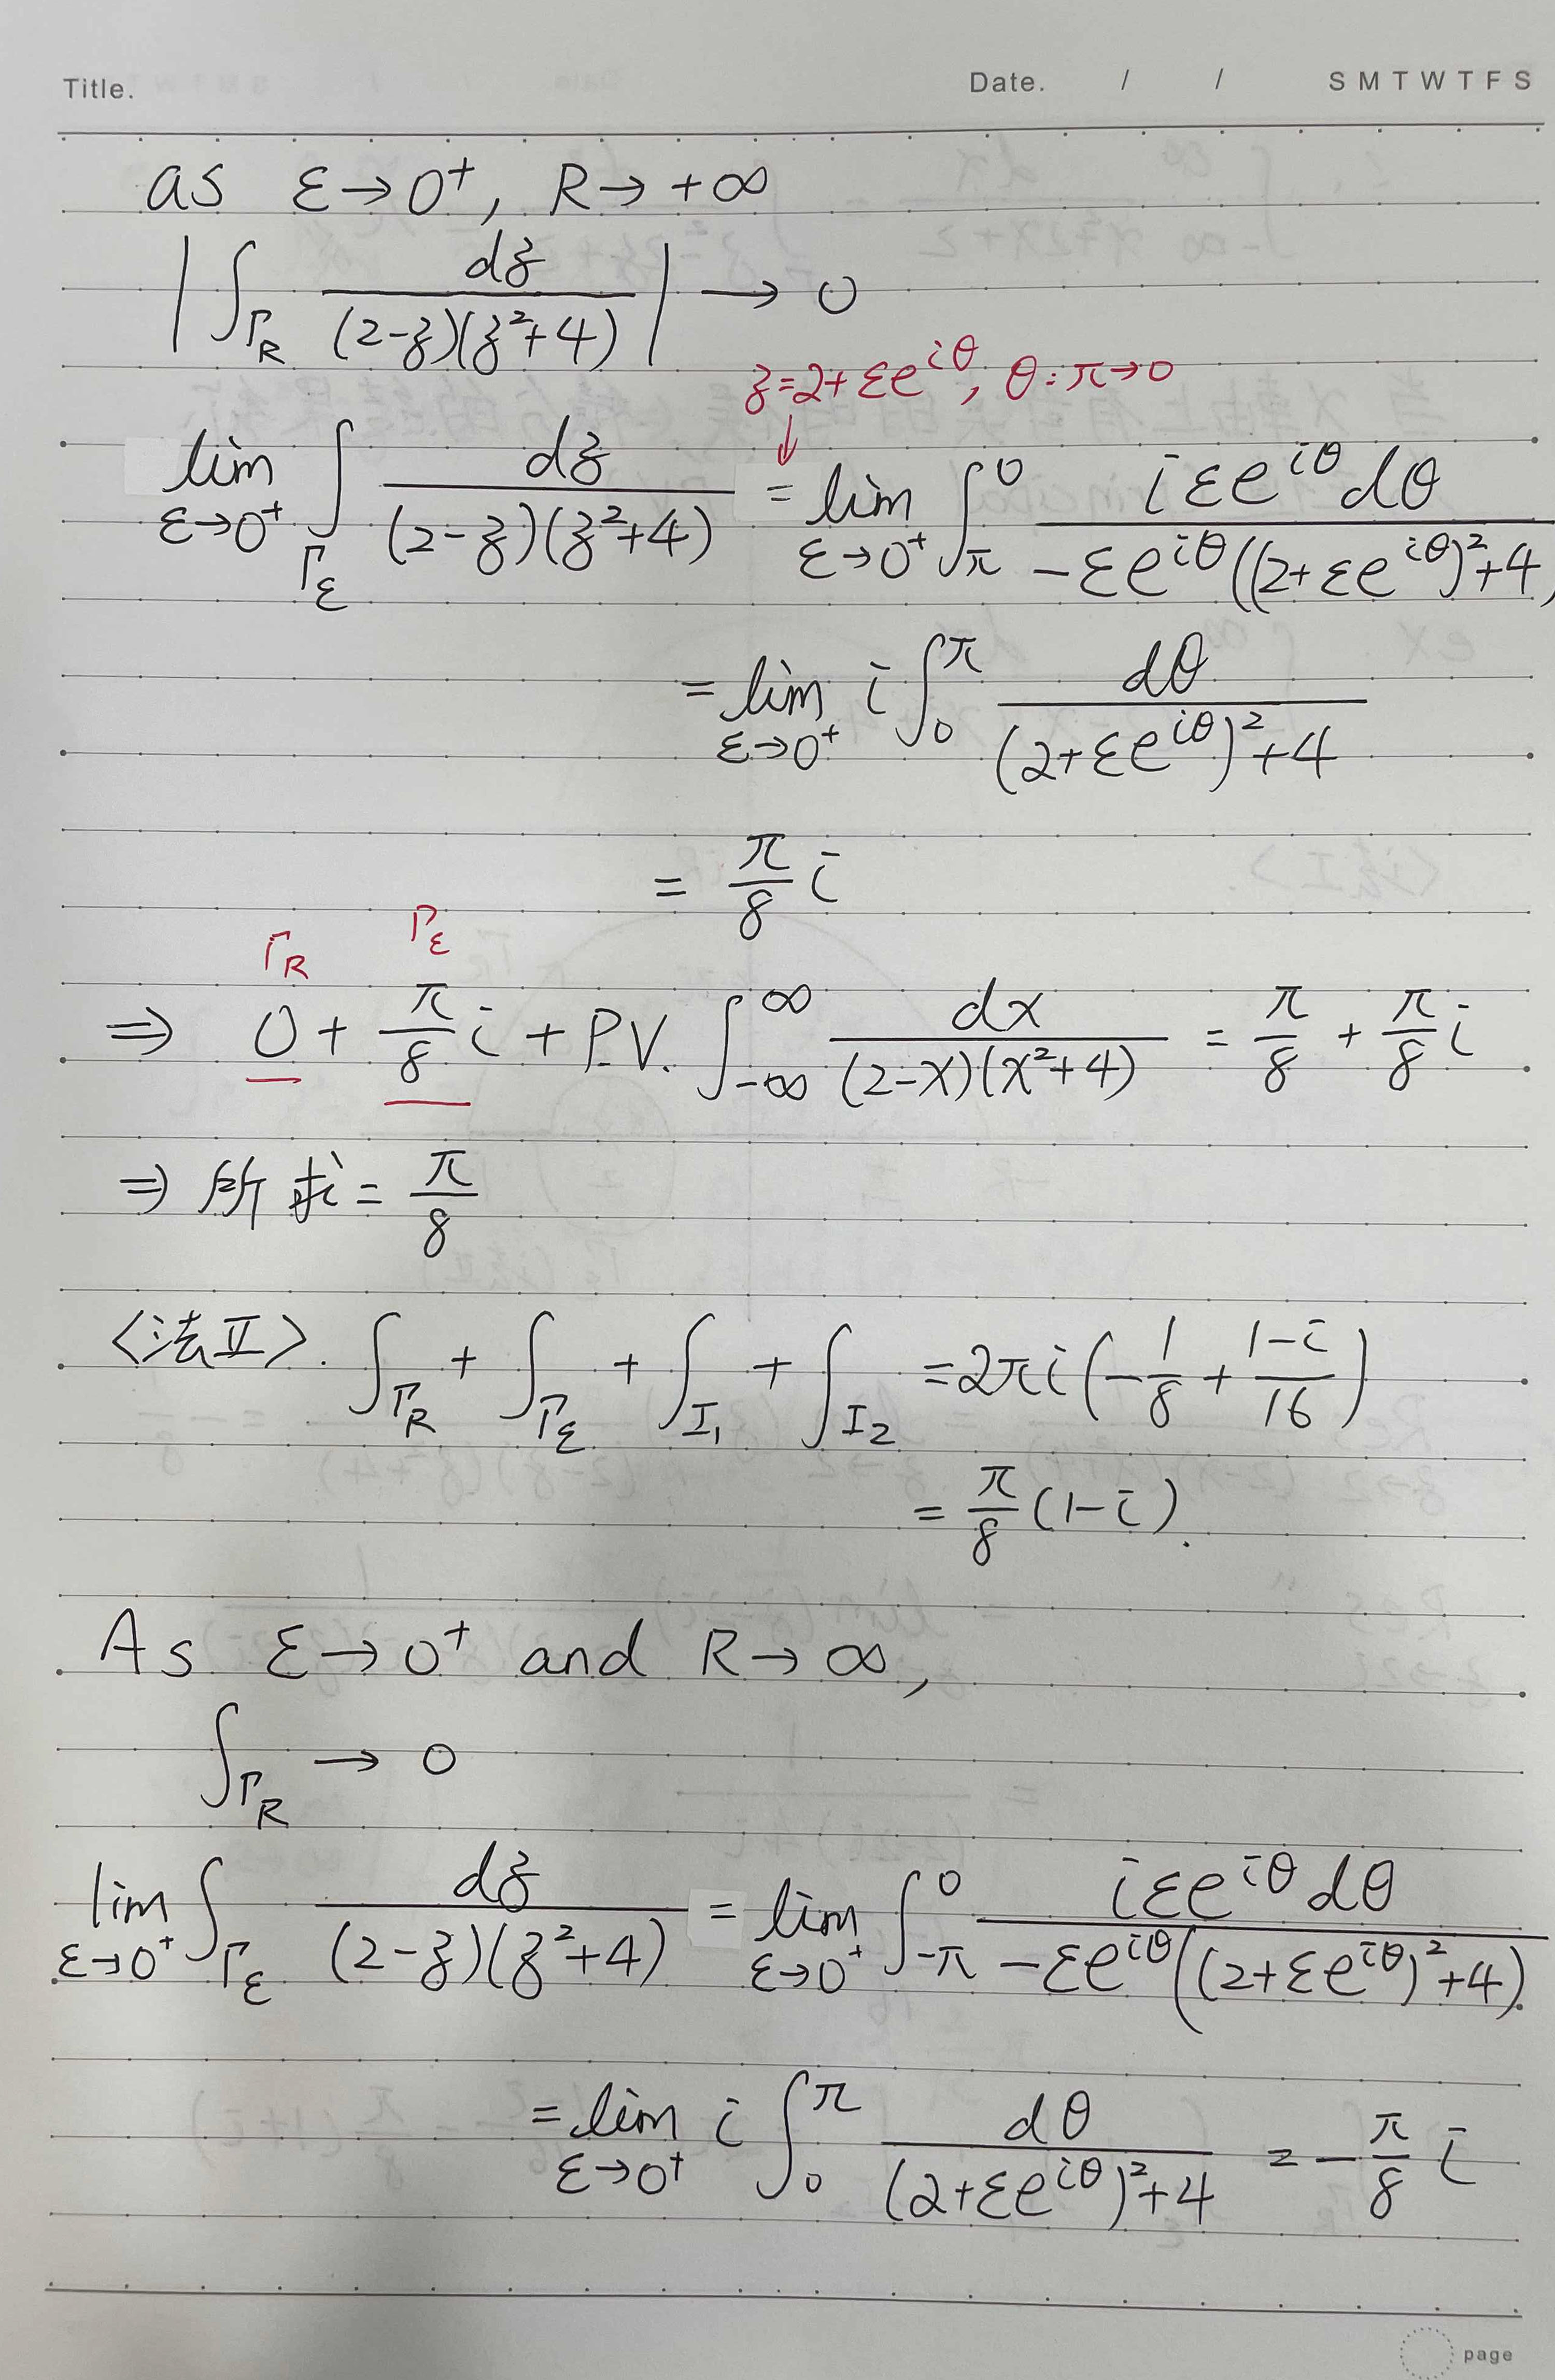 Title. Date. / / S M T W T F S
as ε→0⁺, R→+∞
|∫_{Γ_R} dz/((2-z)(z²+4))| → 0
z=2+εe^{iθ}, θ:π→0
↓
lim_{ε→0⁺} ∫_{Γ_ε} dz/((2-z)(z²+4)) = lim_{ε→0⁺} ∫_π^0 iεe^{iθ}dθ/(-εe^{iθ}((2+εe^{iθ})²+4)
= lim_{ε→0⁺} i∫_0^π dθ/((2+εe^{iθ})²+4)
= π/8 i
Γ_R Γ_ε
⇒ 0 + π/8 i + P.V. ∫_{-∞}^∞ dx/((2-x)(x²+4)) = π/8 + π/8 i
⇒ 所求 = π/8
<法Ⅱ>. ∫_{Γ_R} + ∫_{Γ_ε} + ∫_{I₁} + ∫_{I₂} = 2πi(-1/8 + (1-i)/16)
= π/8 (1-i).
As ε→0⁺ and R→∞,
∫_{Γ_R} → 0
lim_{ε→0⁺} ∫_{Γ_ε} dz/((2-z)(z²+4)) = lim_{ε→0⁺} ∫_{-π}^0 iεe^{iθ}dθ/(-εe^{iθ}((2+εe^{iθ})²+4))
= lim_{ε→0⁺} i∫_0^π dθ/((2+εe^{iθ})²+4) = -π/8 i
page